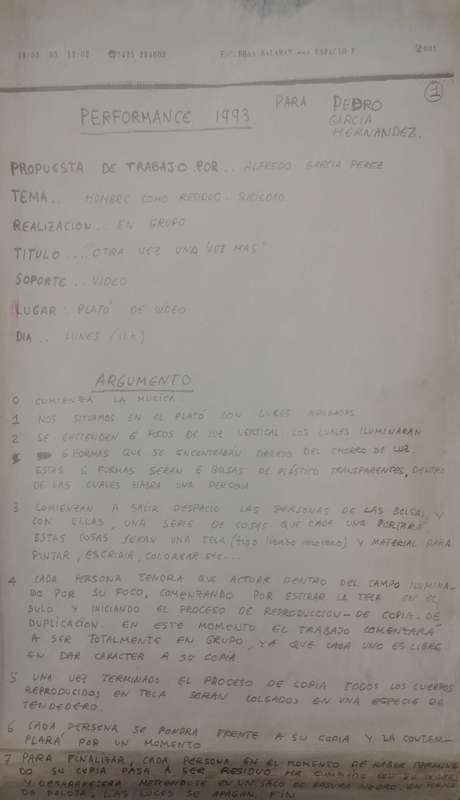 PARA PEDRO
GARCIA
HERNANDEZ.
1
PERFORMANCE 1993
PROPUESTA DE TRABAJO POR.. ALFREDO GARCIA PEREZ
TEMA.. HOMBRE COMO RESIDUO. SUCIEDAD
REALIZACION... EN GRUPO
TITULO... "OTRA VEZ UNA VEZ MAS"
SOPORTE... VIDEO
LUGAR PLATO DE VIDEO
DIA.. LUNES
ARGUMENTO
0 COMIENZA LA MUSICA
1 NOS SITUAMOS EN EL PLATO CON LUCES APAGADAS
2 SE ENTIENDEN 6 FOCOS DE LUZ VERTICAL LOS CUALES ILUMINARAN
6 FORMAS QUE SE ENCONTRARAN DEBAJO DEL CHORRO DE LUZ.
ESTAS 6 FORMAS SERAN 6 BOLSAS DE PLASTICO TRANSPARENTES, DENTRO
DE LAS CUALES HABRA UNA PERSONA
3 COMIENZAN A SALIR DESPACIO LAS PERSONAS DE LAS BOLSAS, Y
CON ELLAS, UNA SERIE DE COSAS QUE CADA UNA PORTARA
ESTAS COSAS SERAN UNA TELA (tipo lienzo moreno) Y MATERIAL PARA
PINTAR, ESCRIBIR, COLOREAR etc...
4 CADA PERSONA TENDRA QUE ACTUAR DENTRO DEL CAMPO ILUMINA-
DO POR SU FOCO, COMENZANDO POR ESTIRAR LA TELA EN EL
SULO Y INICIANDO EL PROCESO DE REPRODUCCION - DE COPIA. DE
DUPLICACION. EN ESTE MOMENTO EL TRABAJO COMENZARA
A SER TOTALMENTE EN GRUPO, YA QUE CADA UNO ES LIBRE
EN DAR CARACTER A SU COPIA
5 UNA VEZ TERMINADOS EL PROCESO DE COPIA TODOS LOS CUERPOS
REPRODUCIDOS EN TELA SERAN COLGADOS EN UNA ESPECIE DE
TENDEDERO.
6 CADA PERSONA SE PONDRA FRENTE A SU COPIA Y LA CONTEM-
PLARÁ POR UN MOMENTO
7 PARA FINALIZAR, CADA PERSONA EN EL MOMENTO DE HABER TERMINA
DO SU COPIA PASA A SER RESIDUO HA CUMPLIDO CON SU DEBER
Y DESAPARECERA METIENDOSE EN UN SACO DE BASURA NEGRO, EN FORMA
DE PELOTA, LAS LUCES SE APAGAN. FIN